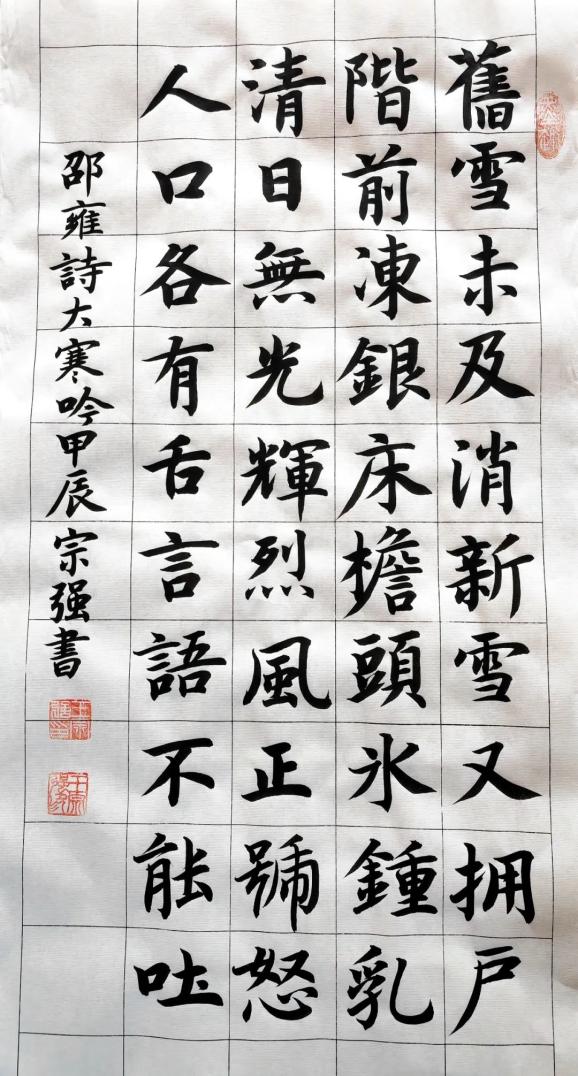 舊雪未及消新雪又拥户
階前凍銀床檐頭氷鍾乳
清日無光輝烈風正號怒
人口各有舌言語不能吐
邵雍詩大寒吟甲辰宗强書